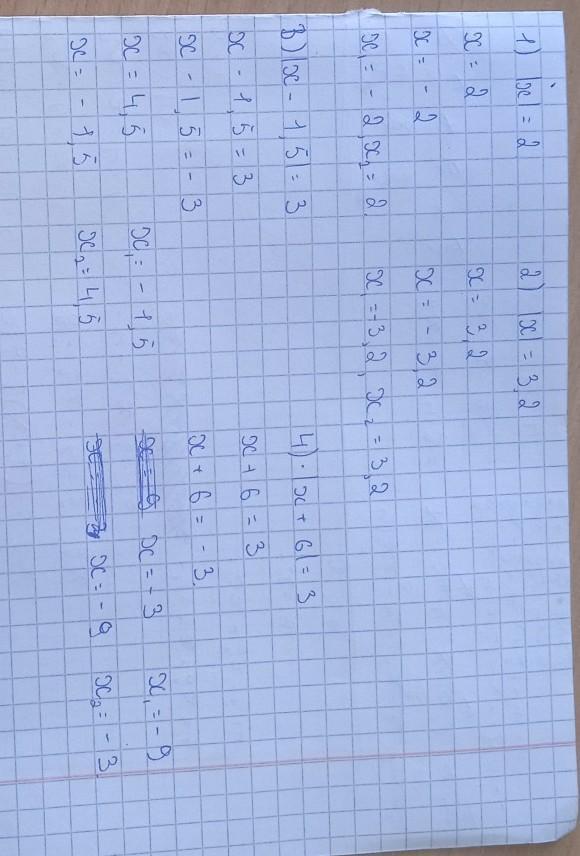 1) |x| = 2
x = 2
x = - 2
x₁ = - 2, x₂ = 2.
2) |x| = 3,2
x = 3,2
x = - 3,2
x₁ = -3,2, x₂ = 3,2
3) |x - 1,5| = 3
x - 1,5 = 3
x - 1,5 = - 3
x = 4,5
x = - 1,5
x₁ = - 1,5
x₂ = 4,5
4) |x + 6| = 3
x + 6 = 3
x + 6 = - 3.
x = - 3
x = - 9
x₁ = - 9
x₂ = - 3.